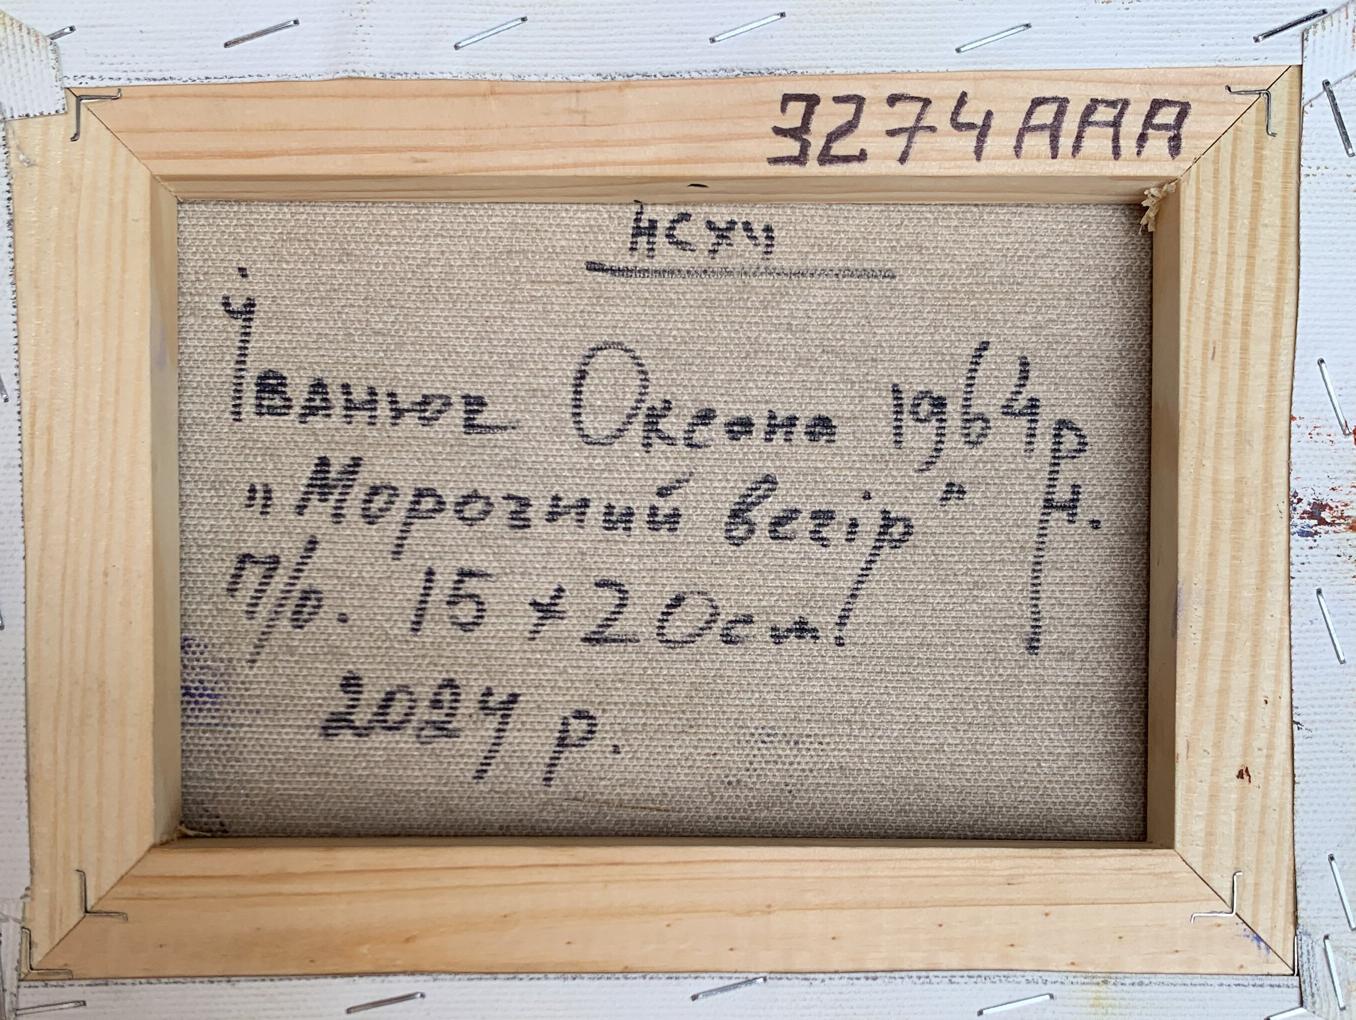 3274AAA
НСХУ
Іванюк Оксана 1964р.н.
"Морозний вечір"
п/о. 15×20см.
2024 р.